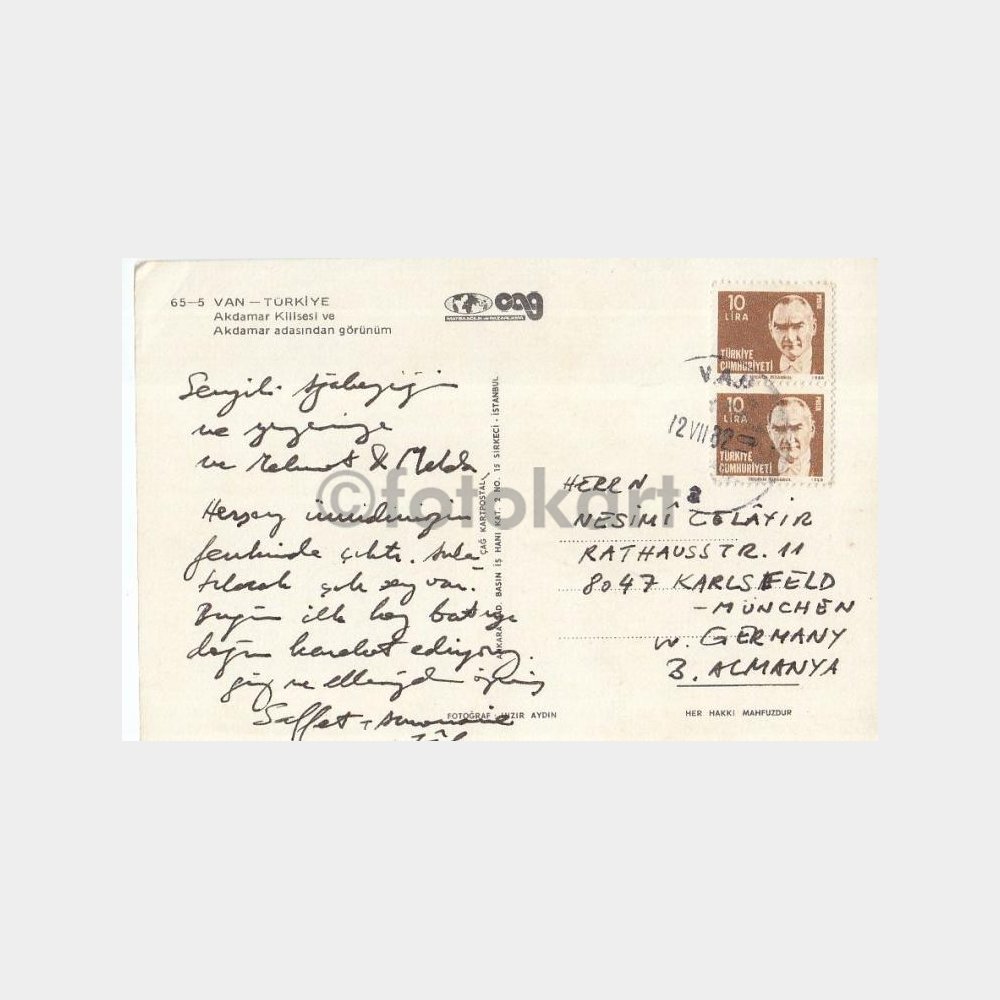 65-5 VAN - TÜRKİYE
Akdamar Kilisesi ve
Akdamar adasından görünüm
MATBAACILIK ve PAZARLAMA
cag
10
LİRA
POSTA
TÜRKİYE
CUMHURİYETİ
VAN
12 VII 82
10
LİRA
TÜRKİYE
CUMHURİYETİ
Sevgili Ağabeyciğim
ve yengemize
ve Mehmet & Melda
Herşey ümidimizin
fevkinde çıktı.
çok şey var.
Bugün ilk kez batıya
doğru hareket ediyoruz.
ve ellerinizden
Saffet
ANKARA CAD. BASIN İŞ HANI KAT. 2 NO. 15 SİRKECİ - İSTANBUL
ÇAĞ KARTPOSTAL
©fotokart
HERRN
NESİMİ CELÂYİR
RATHAUSSTR. 11
8047 KARLSFELD
- MÜNCHEN
W. GERMANY
B. ALMANYA
FOTOĞRAF : HIZIR AYDIN
HER HAKKI MAHFUZDUR